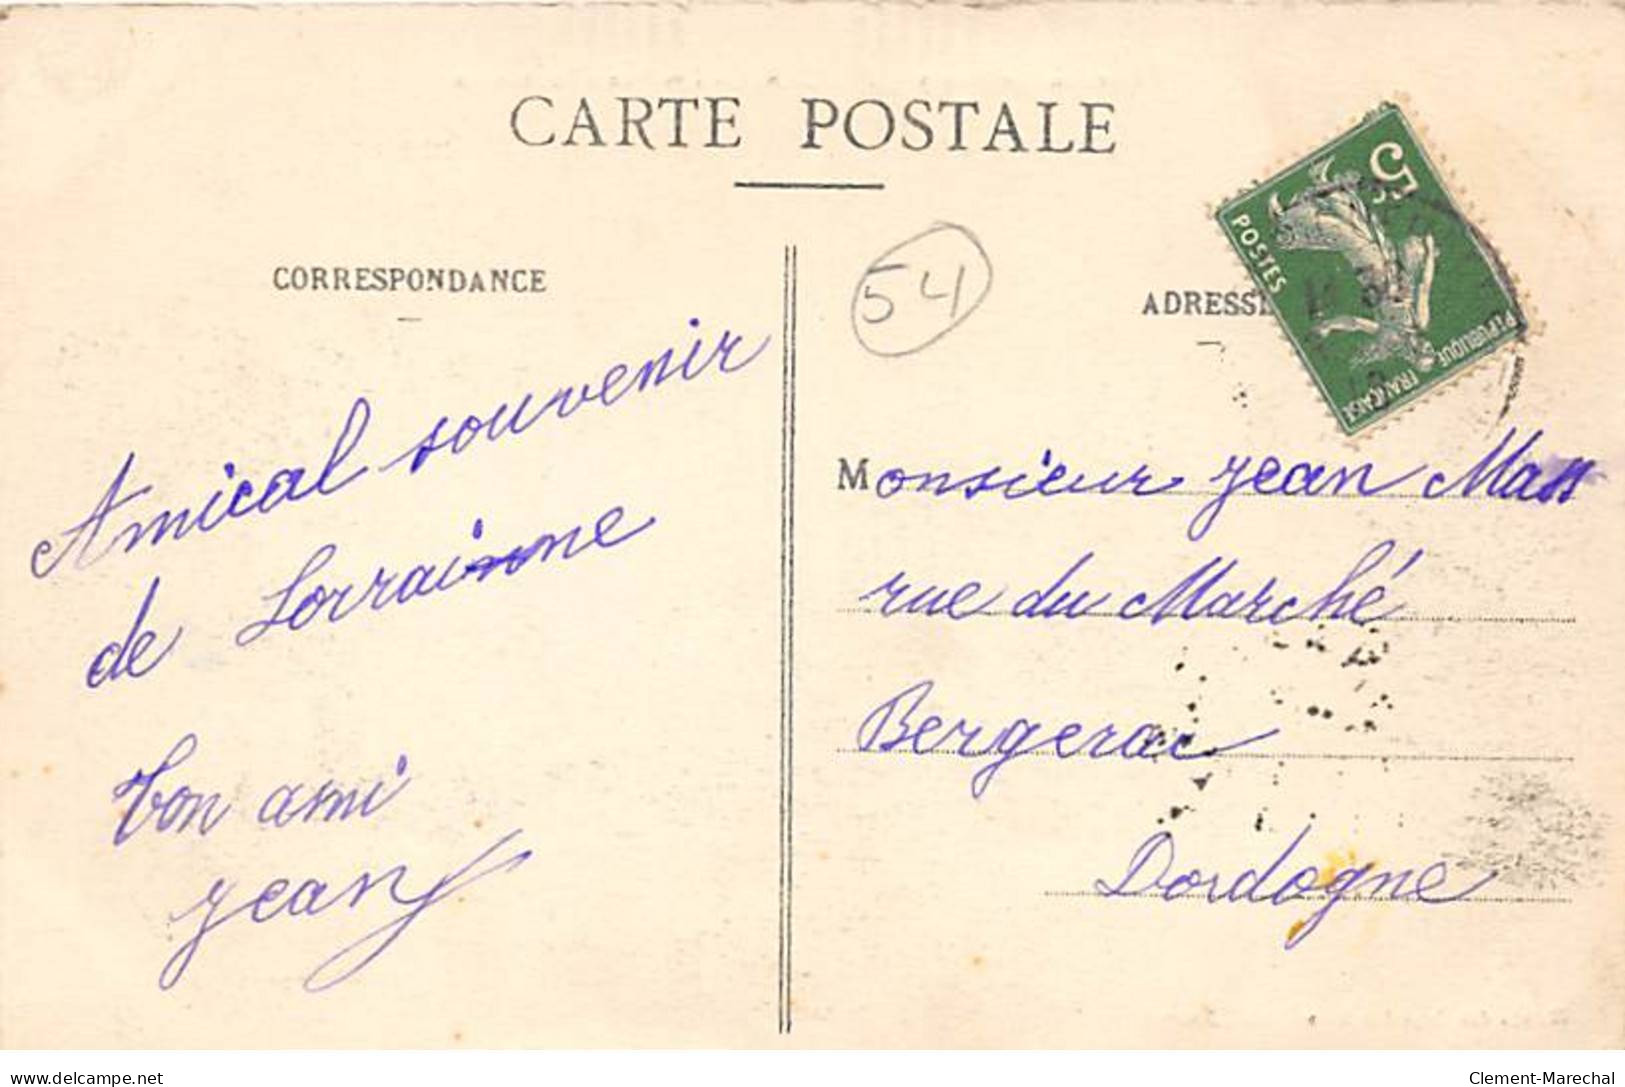 CARTE POSTALE
CORRESPONDANCE
54
ADRESSE
5c
POSTES
REPUBLIQUE
FRANÇAISE
Amical souvenir
de Lorrainne
ton ami
Jean
Monsieur Jean
rue du Marché
Bergerac
Dordogne
www.delcampe.net
Clement-Marechal